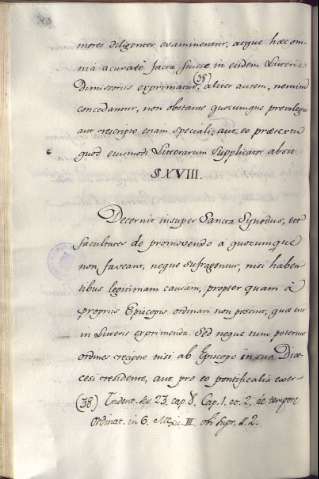 mores diligenter examinentur, atque hæc om-
nia acuratè facta fuisse in eisdem Literis
Dimissoriis exprimatur, (38) aliter autem, nemini
concedantur, non obstante quocumque privilegio
aut rescripto etiam speciali, aut eo prætextu
quod eiusmodi Litterarum supplicator
§ XVIII.
Decernit insuper Sancta Synodus, ut
facultates de promovendo a quocumque
non faveant, neque sufragentur, nisi haben-
tibus legitimam causam, propter quam à
propriis Episcopis ordinari non possint, quæ etiam
in Literis exprimenda. Sed neque tum poterunt
ordines recipere nisi ab Episcopo in sua Diœ-
cesi residente, aut pro eo pontificalia exer-
(38) Trident. ses. 23. cap. 8. Cap. 1. et. 2. de tempore
Ordinat. in 6. Mexic. III. tit. 4. §. 2.